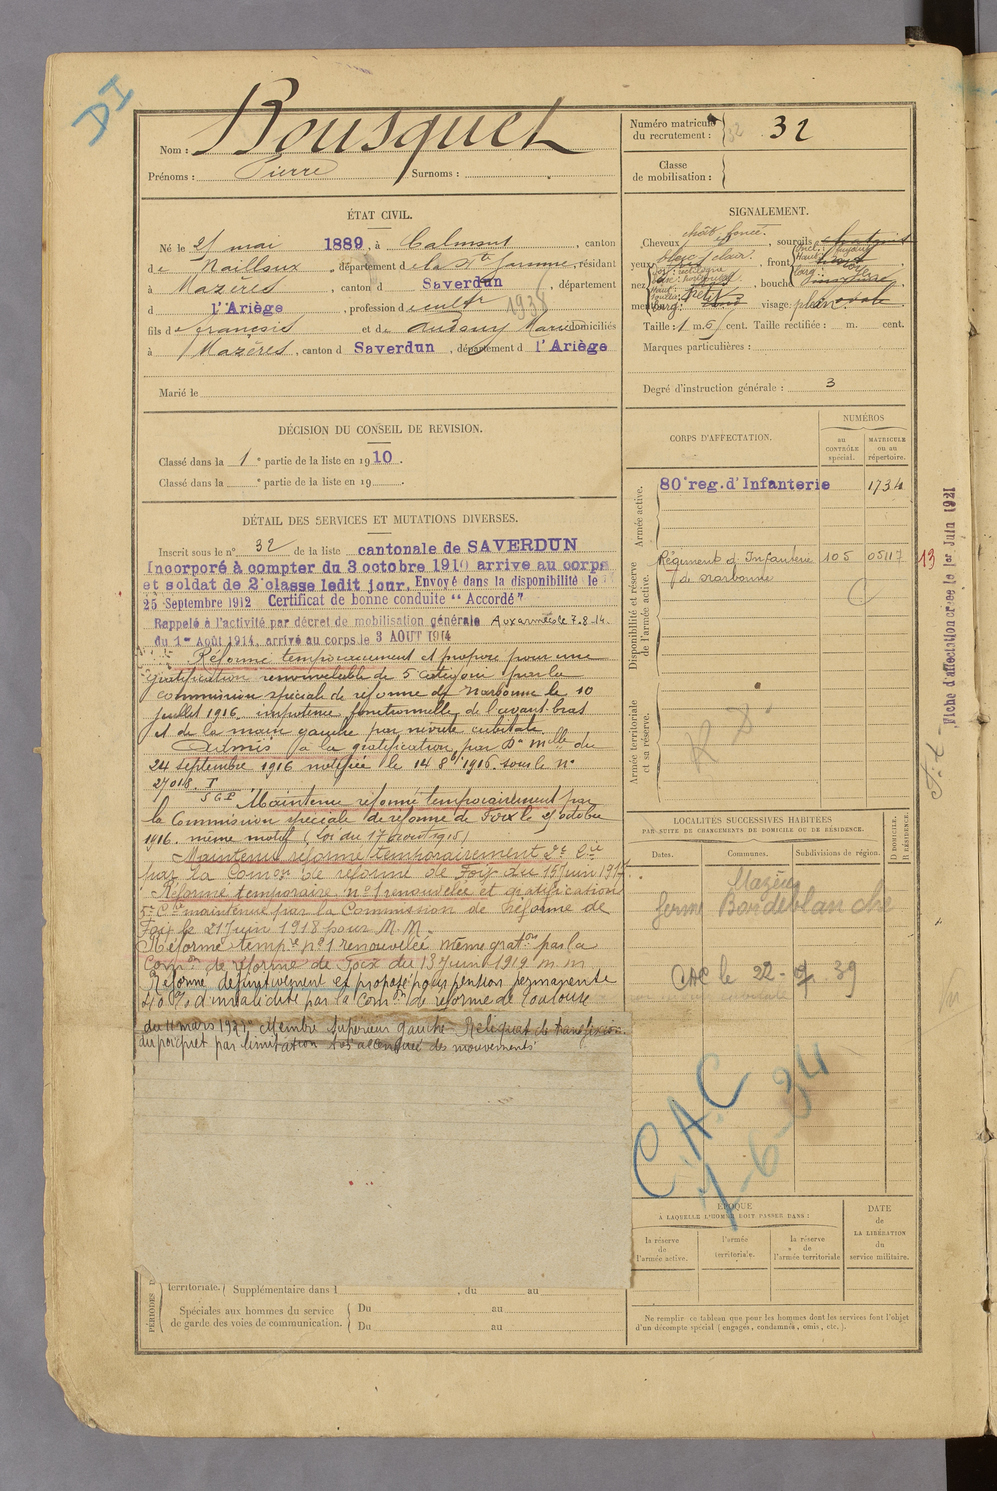 DI
Nom : Bousquet
Prénoms : Pierre Surnoms :
Numéro matricule du recrutement : 32 32
Classe de mobilisation :
ÉTAT CIVIL.
Né le 21 mai 1889, à Calmont, canton
de Nailloux, département de la Hte Garonne, résidant
à Mazères, canton d Saverdun, département
d l'Ariège, profession de cultr 1938
fils de françois et de Marie domiciliés
à Mazères, canton d Saverdun, département d l'Ariège
Marié le
SIGNALEMENT.
Cheveux chât foncé, sourcils châtains
yeux clair, front
nez , bouche
menton , visage plein ovale
Taille : 1 m. 6 cent. Taille rectifiée : m. cent.
Marques particulières :
Degré d'instruction générale : 3
DÉCISION DU CONSEIL DE REVISION.
Classé dans la 1e partie de la liste en 1910.
Classé dans la e partie de la liste en 19 .
CORPS D'AFFECTATION.
NUMÉROS
au CONTRÔLE spécial.
MATRICULE ou au répertoire.
Armée active.
80e reg. d'Infanterie 1734
Disponibilité et réserve de l'armée active.
Régiment d'Infanterie 105 05117 13
de Narbonne
Armée territoriale et sa réserve.
Fiche d'affectation créée le 1er Juin 1921
DÉTAIL DES SERVICES ET MUTATIONS DIVERSES.
Inscrit sous le n° 32 de la liste cantonale de SAVERDUN
Incorporé à compter du 3 octobre 1910 arrive au corps
et soldat de 2e classe ledit jour. Envoyé dans la disponibilité le
25 Septembre 1912 Certificat de bonne conduite "Accordé"
Rappelé à l'activité par décret de mobilisation générale Aux armées le 7.8.14.
du 1er Août 1914, arrivé au corps le 3 AOUT 1914
Réformé temporairement et proposé pour une
gratification renouvelable de 5 catégorie par la
commission spéciale de réforme de Narbonne le 10
juillet 1916. impotence fonctionnelle de l'avant-bras
et de la main gauche par névrite cubitale.
Admis à la gratification par Dn mlle du
24 septembre 1916 notifiée le 14 8bre 1916. sous le n°
27018. I
5 G P Maintenu réformé temporairement par
la Commission spéciale de réforme de Foix le octobre
1916. même motif (Loi du 17 août 1915)
Maintenu réformé temporairement 2e
par la Comon de réforme de Foix du 15 Juin 1917
Réformé temporaire n° 1 renouvelée et gratification
5e Cie maintenue par la Commission de Réforme de
Foix le 21 Juin 1918 pour M. M.
Réforme tempre n° 1 renouvelée même graton par la
Comon de réforme de Foix du 13 Juin 1919. m. m.
Réformé définitivement et proposé pour pension permanente
40 % d'invalidité par la Comon de réforme de Toulouse
du 11 mars 1921 "Membre supérieur gauche. Reliquat de transfixion
du poignet par limitation très accentuée des mouvements"
LOCALITÉS SUCCESSIVES HABITÉES
PAR SUITE DE CHANGEMENTS DE DOMICILE OU DE RÉSIDENCE.
Dates. Communes. Subdivisions de région. D DOMICILE. R RÉSIDENCE.
Mazères
ferme Bordeblanche
CAC le 22-7 39
CAC
7-6-34
ÉPOQUE
A LAQUELLE L'HOMME DOIT PASSER DANS :
la réserve de l'armée active.
l'armée territoriale.
la réserve de l'armée territoriale
DATE
de
LA LIBÉRATION
du
service militaire.
territoriale. Supplémentaire dans l , du au
Spéciales aux hommes du service de garde des voies de communication.
Du au
Du au
Ne remplir ce tableau que pour les hommes dont les services font l'objet
d'un décompte spécial (engagés, condamnés, omis, etc.).